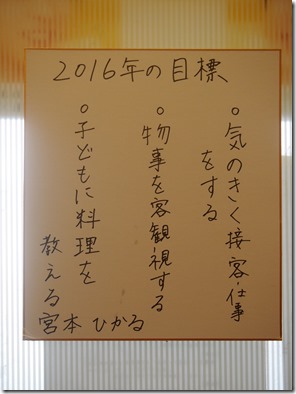 2016年の目標
○気のきく接客・仕事
をする
○物事を客観視する
○子どもに料理を
教える
宮本ひかる